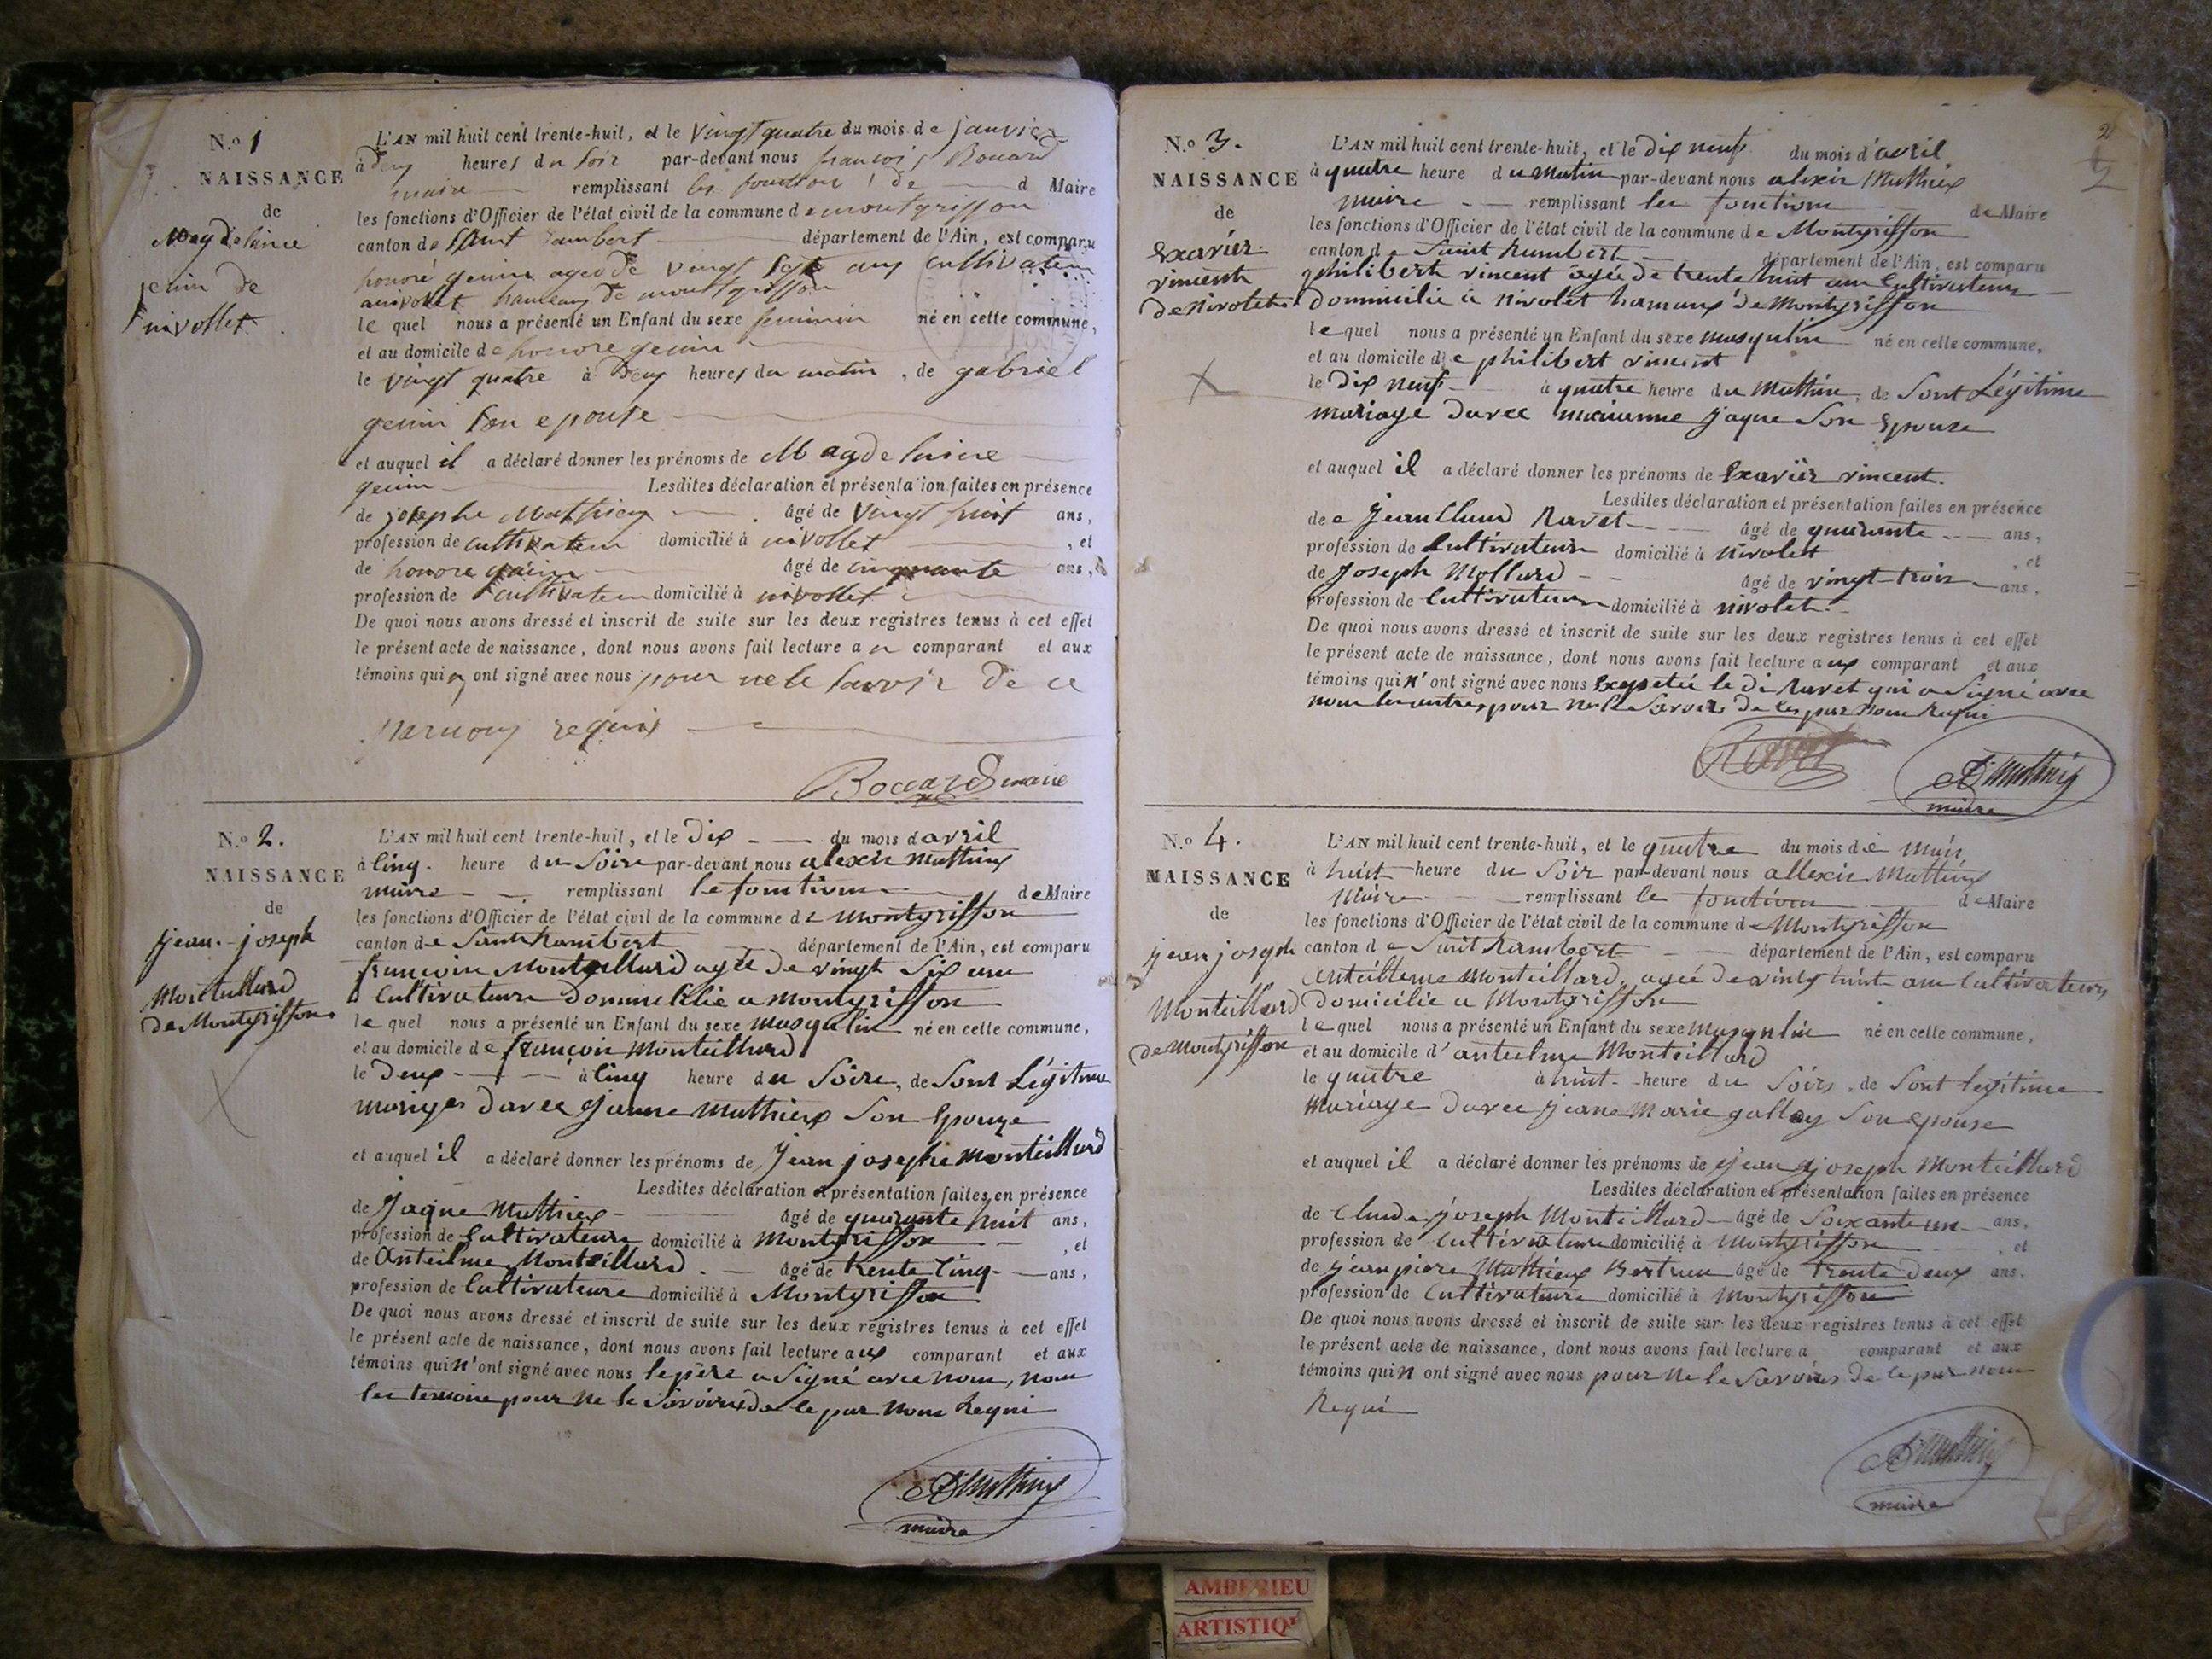 N.o 1
NAISSANCE
de
Magdelaine
genin de
nivollet
L'AN mil huit cent trente-huit, et le vingt quatre du mois de janvier
à deux heures du soir par-devant nous francois Bouard
maire remplissant les fonctions de d Maire
les fonctions d'Officier de l'état civil de la commune de montgriffon
canton de saint rambert département de l'Ain, est comparu
honoré genin agée de vingt sept ans cultivateur
a nivollet hameaux de montgriffon
le quel nous a présenté un Enfant du sexe feminin né en cette commune,
et au domicile de honore genin
le vingt quatre à deux heures du matin, de gabriel
genin son epouse
et auquel il a déclaré donner les prénoms de Magdelaine
genin Lesdites déclaration et présentation faites en présence
de josephe Mathieu âgé de vingt huit ans,
profession de cultivateur domicilié à nivollet , et
de honore genin âgé de cinquante ans,
profession de cultivateur domicilié à nivollet
De quoi nous avons dressé et inscrit de suite sur les deux registres tenus à cet effet
le présent acte de naissance, dont nous avons fait lecture au comparant et aux
témoins qui n ont signé avec nous pour ne le savoir de ce
par nous requis
Bouard maire
N.o 2.
NAISSANCE
de
jean-joseph
Monteillard
de Montgriffon
L'AN mil huit cent trente-huit, et le dix du mois d avril
à cinq heure du soire par-devant nous alexis Mathieux
maire remplissant le fonctions de Maire
les fonctions d'Officier de l'état civil de la commune de Montgriffon
canton de Saint Rambert département de l'Ain, est comparu
françois Monteillard agée de vingt six ans
Cultivateure dommicilié a Montgriffon
le quel nous a présenté un Enfant du sexe masqulin né en cette commune,
et au domicile de françois Monteillard
le deux à cinq heure du Soire, de Sont Légitime
mariges davec jeanne Mathieux Son Epouze
et auquel il a déclaré donner les prénoms de jean josephe Monteillard
Lesdites déclaration et présentation faites en présence
de jaque Mathieux âgé de quarante huit ans,
profession de Cultivateure domicilié à Montgriffon , et
de Anteilme Monteillard âgé de trente cinq ans,
profession de Cultivateure domicilié à Montgriffon
De quoi nous avons dressé et inscrit de suite sur les deux registres tenus à cet effet
le présent acte de naissance, dont nous avons fait lecture aux comparant et aux
témoins qui n'ont signé avec nous le père a Signé avec nous, nom
les temoins pour ne le Savoire de ce par nous Requi
A Mathieux
maire
N.o 3.
NAISSANCE
de
Exavier
vincent
de Nivolet
L'AN mil huit cent trente-huit, et le dix neuf du mois d'avril
à quatre heure du matin par-devant nous alexis Mathieux
maire remplissant les fonctions de Maire
les fonctions d'Officier de l'état civil de la commune de Montgriffon
canton de Saint Rambert département de l'Ain, est comparu
philibert vincent agée de trente huit ans Cultivateure
dommicilié a nivolet hamaux de Montgriffon
le quel nous a présenté un Enfant du sexe masqulin né en cette commune,
et au domicile de philibert vincent
le dix neuf à quatre heure du Mathin, de Sont Légitime
mariage davec marianne jaque Son Epouse
et auquel il a déclaré donner les prénoms de Exavier vincent.
Lesdites déclaration et présentation faites en présence
de Jean Claud Ravet âgé de quarante ans,
profession de Cultivateure domicilié à nivolet , et
de Joseph Mollard âgé de vingt-trois ans,
profession de Cultivateure domicilié à nivolet
De quoi nous avons dressé et inscrit de suite sur les deux registres tenus à cet effet
le présent acte de naissance, dont nous avons fait lecture aux comparant et aux
témoins qui n'ont signé avec nous le di Ravet qui a Signé avec
nous les autres pour ne le Savoir de ce par nous Requi
Ravet
A Mathieux
maire
2
N.o 4.
NAISSANCE
de
jean joseph
Monteillard
de Montgriffon
L'AN mil huit cent trente-huit, et le quatre du mois de mais
à huit heure du Soir par-devant nous allexis Mathieux
Maire remplissant le fonctions de Maire
les fonctions d'Officier de l'état civil de la commune de Montgriffon
canton de Saint Rambert département de l'Ain, est comparu
anteilleme Monteillard, agée de vingt huit ans Cultivateure
domicilié a Montgriffon
le quel nous a présenté un Enfant du sexe Masqulin né en cette commune,
et au domicile d'anteilme Monteillard
le quatre à huit heure du Soirs, de Sont legitime
Mariage davec jeane Marie gallay Son epouse
et auquel il a déclaré donner les prénoms de jean joseph Monteillard
Lesdites déclaration et présentation faites en présence
de Claude joseph Monteillard âgé de Soixante un ans,
profession de Cultivateure domicilié à Montgriffon , et
de jean piere Mathieux Bertren âgé de trente deux ans.
profession de Cultivateure domicilié à Montgriffon
De quoi nous avons dressé et inscrit de suite sur les deux registres tenus à cet effet
le présent acte de naissance, dont nous avons fait lecture a comparant et aux
témoins qui n ont signé avec nous pour ne le Savoires de ce par nous
Requi
A Mathieux
maire
AMBERIEU
ARTISTIQ